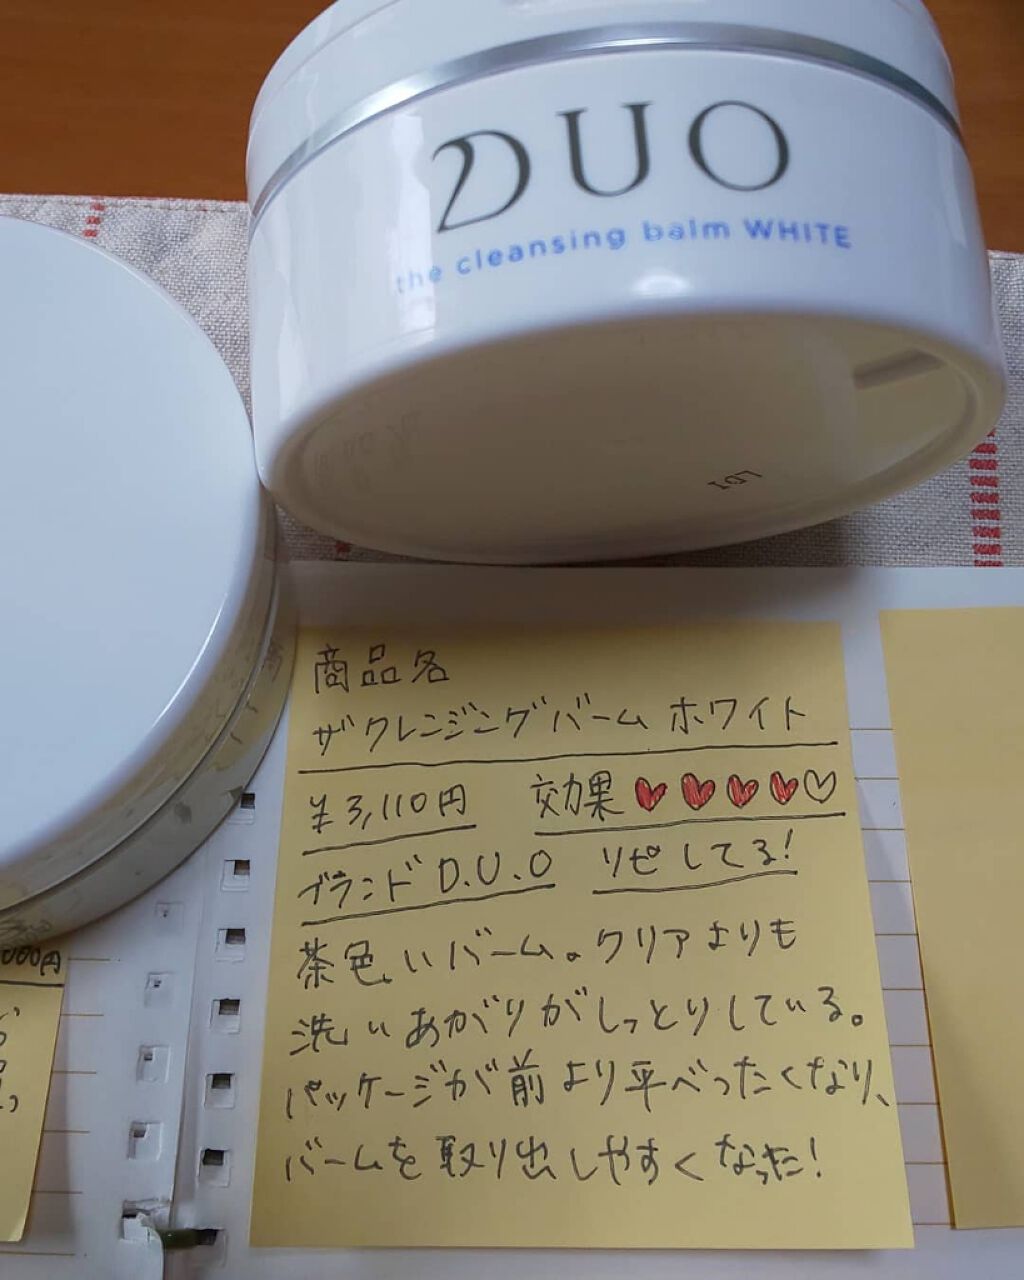 DUO
the cleansing balm WHITE
商品名
ザ クレンジングバーム ホワイト
¥3,110円 効果♥♥♥♥♡
ブランド D.U.O リピしてる!
茶色いバーム。クリアよりも
洗いあがりがしっとりしている。
パッケージが前より平べったくなり、
バームを取り出しやすくなった!
000円